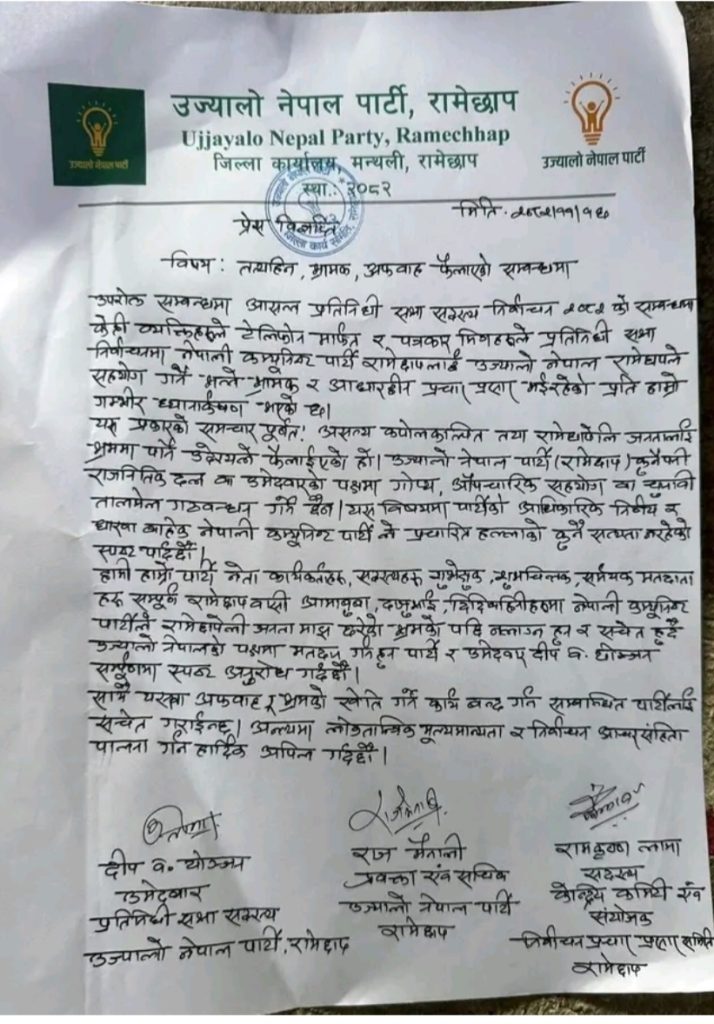 उज्यालो नेपाल पार्टी, रामेछाप
Ujjayalo Nepal Party, Ramechhap
जिल्ला कार्यालय, मन्थली, रामेछाप
स्था.: २०८२
उज्यालो नेपाल पार्टी
उज्यालो नेपाल पार्टी
मिति. २०८२।११।१६
प्रेस विज्ञप्ति
विषय: तथ्यहिन, भ्रामक, अफवाह फैलाएको सम्बन्धमा
उपरोक्त सम्बन्धमा आसन्न प्रतिनिधी सभा सदस्य निर्वाचन २०८२ को सम्बन्धमा
केही व्यक्तिहरुले टेलिफोन मार्फत र पत्रकार मित्रहरुले प्रतिनिधी सभा
निर्वाचनमा नेपाली कम्युनिष्ट पार्टी रामेछापलाई उज्यालो नेपाल रामेछापले
सहयोग गर्ने भन्ने भ्रामक र आधारहीन प्रचार प्रसार भईरहेको प्रति हाम्रो
गम्भीर ध्यानाकर्षण भएको छ।
यस प्रकारको समाचार पूर्वत: असत्य कपोलकल्पित तथा रामेछापेलि जनतालाई
भ्रममा पार्ने उद्देश्यले फैलाईएको हो। उज्यालो नेपाल पार्टी (रामेछाप) कुनैपनी
राजनितिक दल वा उमेदवारको पक्षमा गोप्य, औपचारिक सहयोग वा चुनावी
तालमेल गठवन्धन गर्ने छैन। यस विषयमा पार्टीको आधिकारिक निर्णय र
धारणा बाहेक नेपाली कम्युनिष्ट पार्टी ले प्रचारित हल्लाको कुनै सत्यता नरहेको
स्पष्ट पार्दछौँ।
हामी हाम्रो पार्टी नेता कार्यकर्ताहरु, सदस्यहरु शुभेच्छुक, शुभचिन्तक, समर्थक मतदाता
हरु सम्पूर्ण रामेछापवासी आमाबुवा, दाजुभाई, दिदिबहिनीहरुमा नेपाली कम्युनिष्ट
पार्टीले रामेछापेली जनता माझ छरेको भ्रमको पछि नलाग्न हुन र सचेत हुदै
उज्यालो नेपालको पक्षमा मतदान गर्न हुन पार्टी र उमेदवार दीप ब. योञ्जन
सम्पूर्णमा स्पष्ट अनुरोध गर्दछौँ।
साथै यस्ता अफवाह र भ्रमको खेति गर्ने कार्य बन्द गर्न सम्बन्धित पार्टीलाई
सचेत गराईन्छ। अन्त्यमा लोकतान्त्रिक मूल्यमान्यता र निर्वाचन आचार संहिता
पालना गर्न हार्दिक अपिल गर्दछौँ।
दीप ब. योञ्जन
उमेदवार
प्रतिनिधी सभा सदस्य
उज्यालो नेपाल पार्टी, रामेछाप
राज मैनाली
प्रवक्ता एंव सचिव
उज्यालो नेपाल पार्टी
रामेछाप
रामकृष्ण लामा
सदस्य
केन्द्रिय कमिटी एंव
संयोजक
निर्वाचन प्रचार प्रसार समिति
रामेछाप